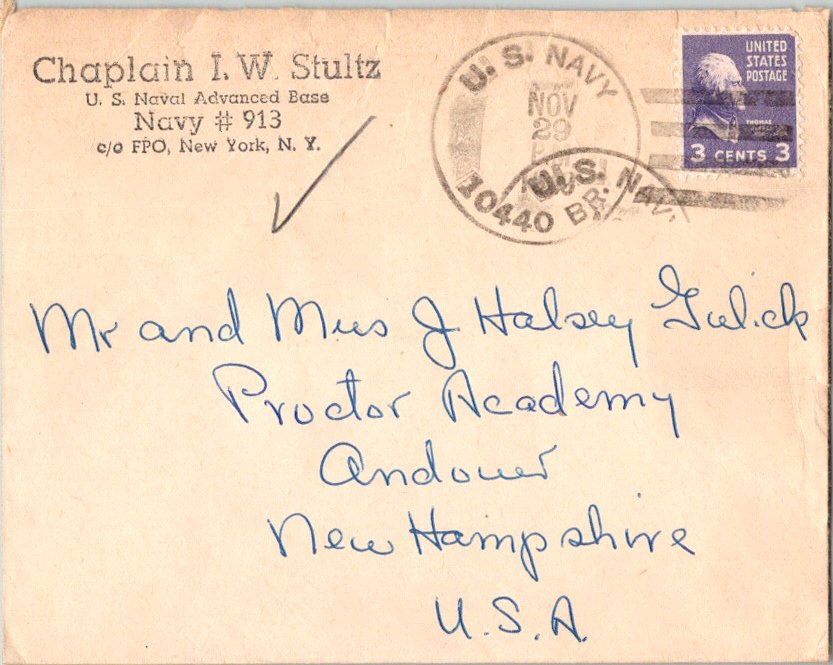 Chaplain I. W. Stultz
U. S. Naval Advanced Base
Navy # 913
c/o FPO, New York, N. Y.
U. S. NAVY
NOV
29
10440 BR.
U. S. NAVY
UNITED
STATES
POSTAGE
THOMAS
3 CENTS 3
Mr and Mrs J Halsey Gulick
Proctor Academy
Andover
New Hampshire
U.S.A.